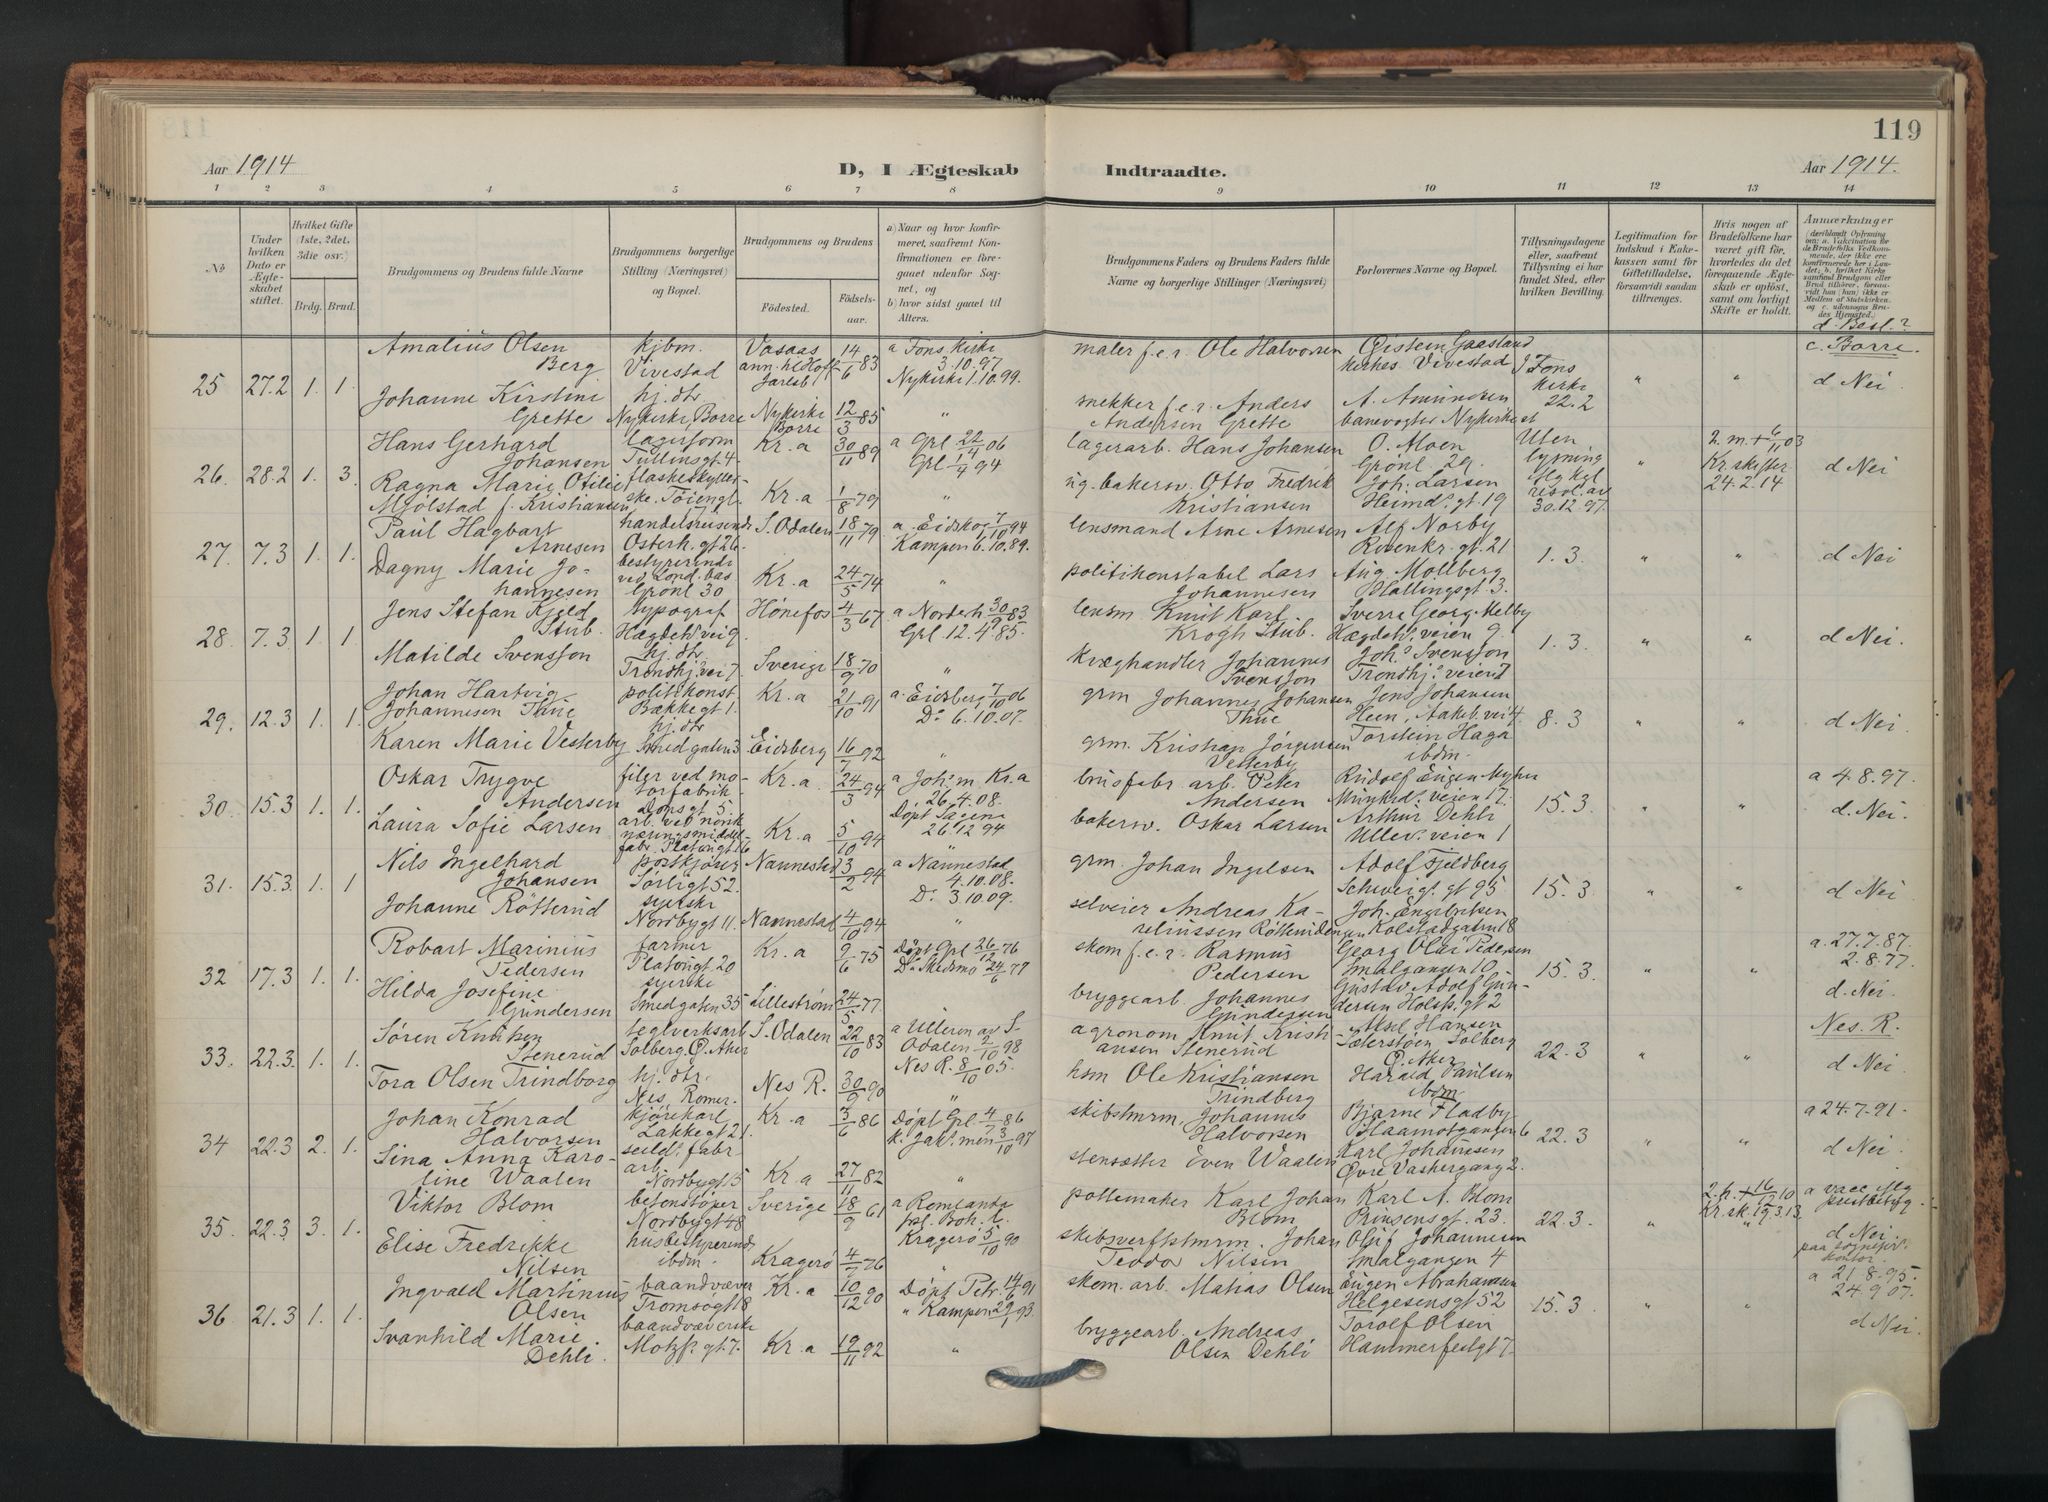 119
Aar 1914
D, I Ægteskab
Indtraadte.
Aar 1914.
1 2 3 4 5 6 7 8 9 10 11 12 13 14
No
Under hvilken Dato er Ægteskabet stiftet.
Hvilket Gifte (1ste, 2det, 3die osv.)
Brdg. Brud.
Brudgommens og Brudens fulde Navne
Brudgommens borgerlige Stilling (Næringsvei) og Bopæl.
Brudgommens og Brudens
Fødested.
Fødselsaar.
a) Naar og hvor konfirmeret, saafremt Konfirmationen er foregaaet udenfor Sognet, og
b) hvor sidst gaaet til Alters.
Brudgommens Faders og Brudens Faders fulde Navne og borgerlige Stillinger (Næringsvei)
Forlovernes Navne og Bopæl.
Tillysningsdagene eller, saafremt Tillysning ei har fundet Sted, efter hvilken Bevilling.
Legitimation for Indskud i Enkekassen samt for Giftetilladelse, forsaavidt saadan tiltrænges.
Hvis nogen af Brudefolkene har været gift før, hvorledes da det foregaaende Ægteskab er opløst, samt om lovligt Skifte er holdt.
Anmærkninger
d. Besl.?
25 27.2 1. 1.
Amalius Olsen Berg
kjbm. Vivestad
Vasaas
14/6 83
a Fons kirke 3.10.97
Nykirke 1.10.99.
maler f.e.r. Ole Halvorsen
Øistein Gaasland
kirkes. Vivestad
Fons kirke 22.2
" "
c. Borre.
d Nei
Johanne Kirstine Grette
hj. dtr
Nykirke, Borre
Nykirke Borre
12/3 85
"
snekker f.e.r. Anders Andersen Grette
A. Amundsen
banevogter Nykirke st
26. 28.2 1. 3
Hans Gerhard Johansen
lagerform
Tullinsgt. 4
Kr.a
30/11 89
a Grl 22/4 06
Grl 1/4 94
lagerarb. Hans Johansen
O. Moen
Grønl 29.
Uten lysning iflg kgl resol. av 30.12.97.
"
2. m. + 6/11 03
Kr. skifter 24.2.14
d Nei
Ragna Marie Otilie Mjølstad f. Kristiansen
flaskeskyllerske.
Kr.a
1/8 79
"
bakersv. Otto Fredrik Kristiansen
Joh. Larsen
Heimd. gt 19
27. 7.3 1. 1.
Paul Hagbart Arnesen
handelsreisende
Østerh. gt 26
S. Odalen
18/11 79
a. Eidskog 7/10 94
Kampen 6.10.89.
lensmand Arne Arnesen
Alf Norby
Rosenkr. gt. 21
1.3
" "
d Nei
Dagny Marie Johannesen
bestyrerinde
Grønl 30
Kr.a
24/5 74
"
politikonstabel Lars Johannesen
Aug Mollberg
Hallingsgt 3.
28. 7.3 1. 1
Jens Stefan Kjeld Stub.
typograf
Hægdeh. vei 9.
Hønefos
4/3 67
a Norderh. 30/9 83
Grl. 12.4.85.
lensm Knut Karl Krogh Stub.
Sverre Georg Melby
Hægdeh. veien 9.
1.3
" "
d Nei.
Matilde Svensson
hj. dtr.
Trondhj. vei 7
Sverige
18/9 70
"
kvæghandler Johannes Svensson
Joh. Svensson
Trondhj. veien 7
29. 12.3 1. 1.
Johan Hartvig Johannesen Thue
politikonst
Bakkegt 1.
Kr.a
21/10 91
a. Eidsberg 7/10 06
Do 6.10.07.
grm Johannes Johansen Thue
Jens Johansen
Heen, Aakeb. vei 4.
8.3
" "
d Nei
Karen Marie Vesterby
hj. dtr
Smedgaten 3
Eidsberg
16/7 92
"
grm. Kristian Jørgensen Vesterby
Torstein Haga
ibdm.
30. 15.3 1. 1.
Oskar Trygve Andersen
filer ved motorfabrik
Dopsgt 5
Kr.a.
24/3 94
a Joh. m Kr.a
26.4.08.
Døpt Sagene 26/12 94
brusfabr. arb. Peter Andersen
Rudolf Eugen Myhre
Munked. veien 17.
15.3
" "
a 4.8.97.
d. Nei.
Laura Sofie Larsen
arb. ved norsk næringsmiddelfabr. Platousgt 16
Kr.a
5/10 94
"
bakersv. Oskar Larsen
Arthur Dehli
Ullev. veien 1
31. 15.3. 1. 1
Nils Ingelhard Johansen
postkjører
Sørligt 52.
Nannestad
3/2 94
a Nannestad
4.10.08.
Do 3.10.09.
grm. Johan Ingelsen
Adolf Fjeldberg
Schweig. gt 95
15.3
" "
d Nei
Johanne Røtterud
syerske
Nordbygt 11.
Nannestad
4/10 94
"
selveier Andreas Kareliussen
Joh. Engebretsen
Kolstadgaten 18
32 17.3 1. 1.
Robart Marinius Pedersen
farmer
Platousgt. 20
Kr.a
9/6 75
Døpt Grl 26/12 76
Do Skedsmo 24/6 77
skom f.e.r. Rasmus Pedersen
Georg Olai Pedersen
Smalgangen 10
15.3.
" "
a. 27.7.87.
2.8.77.
d. Nei
Hilda Josefine Gundersen
syerske
Smedgaten 35
Lillestrøm
24/5 77.
bryggearb. Johannes Gundersen
Gustav Adolf Gundersen Holsts gt 2
33. 22.3. 1. 1.
Søren Knutsen Stenerud
teglverksarb
Solberg, Ø. Aker
S. Odalen
22/10 83
a Ulleren av S-Odalen 2/10 98
Nes R. 8/10 05.
agronom Knut Kristiansen Stenerud
Axel Hansen
Sæterstøen Solberg
Ø. Aker
22.3
" "
Nes. R.
d Nei
Tora Olsen Trindborg
hj. dtr.
Nes, Romer.
Nes R.
30/9 90
"
hsm Ole Kristiansen Trindberg
Harald Paulsen
ibdm.
34 22.3 2. 1.
Johan Konrad Halvorsen
kjørekarl
Lakkegt 21.
Kr.a
3/6 86
Døpt Grl 4/7 86
k. Jak. men 3/10 97
skibstmrm, Johannes Halvorsen
Bjarne Fladby
Haarmotgangen 6
22.3
" "
a 24.7.91.
d Nei
Lina Anna Karoline Waalen
seild. fabr. arb.
Nordbygt 15
Kr.a
27/11 82
"
stensætter Even Waalen
Karl Johansen
Øvre Vaskergang 2.
35. 22.3 3. 1.
Viktor Blom
betonstøper
Nordbygt 48
Sverige
18/9 61
a Romlanda
Kragerø 5/10 90
pottemaker Karl Johan Blom
Karl A. Blom
Prinsensgt. 23.
22.3.
"
2. h. + 16/12 10
Kr. sk. 19.3.13.
a vacc iflg
presteattest
d Nei
Elise Fredrikke Nilsen
husbestyrerinde
ibdm.
Kragerø
4/7 76
"
skibsverftstmrm. Johan Teodor Nilsen
Oluf Johannesen
Smalgangen 4
36 21.3 1. 1.
Ingvald Martinius Olsen
baandvæver
Tromsøgt 18
Kr.a
10/12 90
Døpt Petr. 14/6 91
" Kampen 29/1 93.
skom. arb. Matias Olsen
Eugen Abrahamsen
Helgesensgt 52
15.3.
" "
a 21.8.95.
24.9.07.
d Nei.
Svanhild Marie Dehli.
baandvæverske
Motzf. gt. 7.
Kr.a
19/11 92
"
bryggearb. Andreas Olsen Dehli
Torolf Olsen
Hammerfestgt 7.